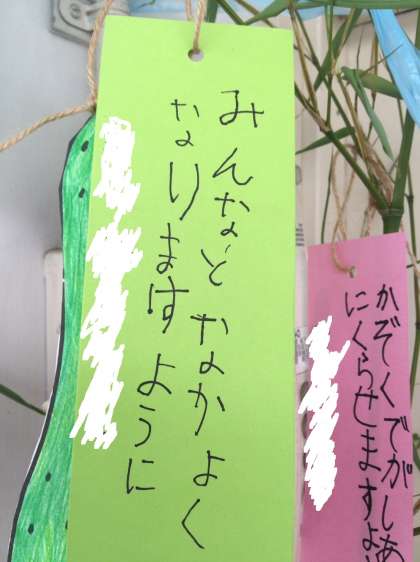 みんなと なかよく
なりますように
かぞくでがしあ
にくらせますよ